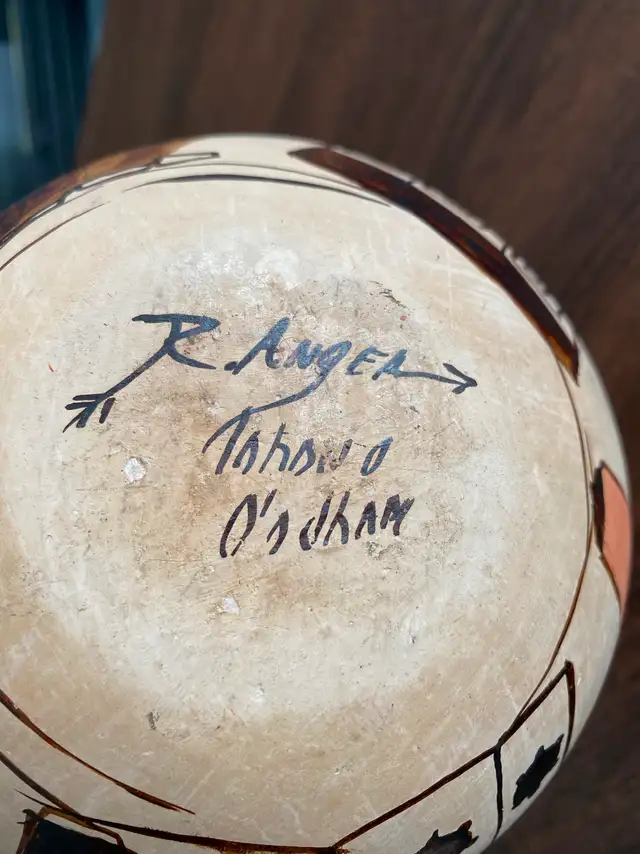 R. Anger
Tahono
O'odham